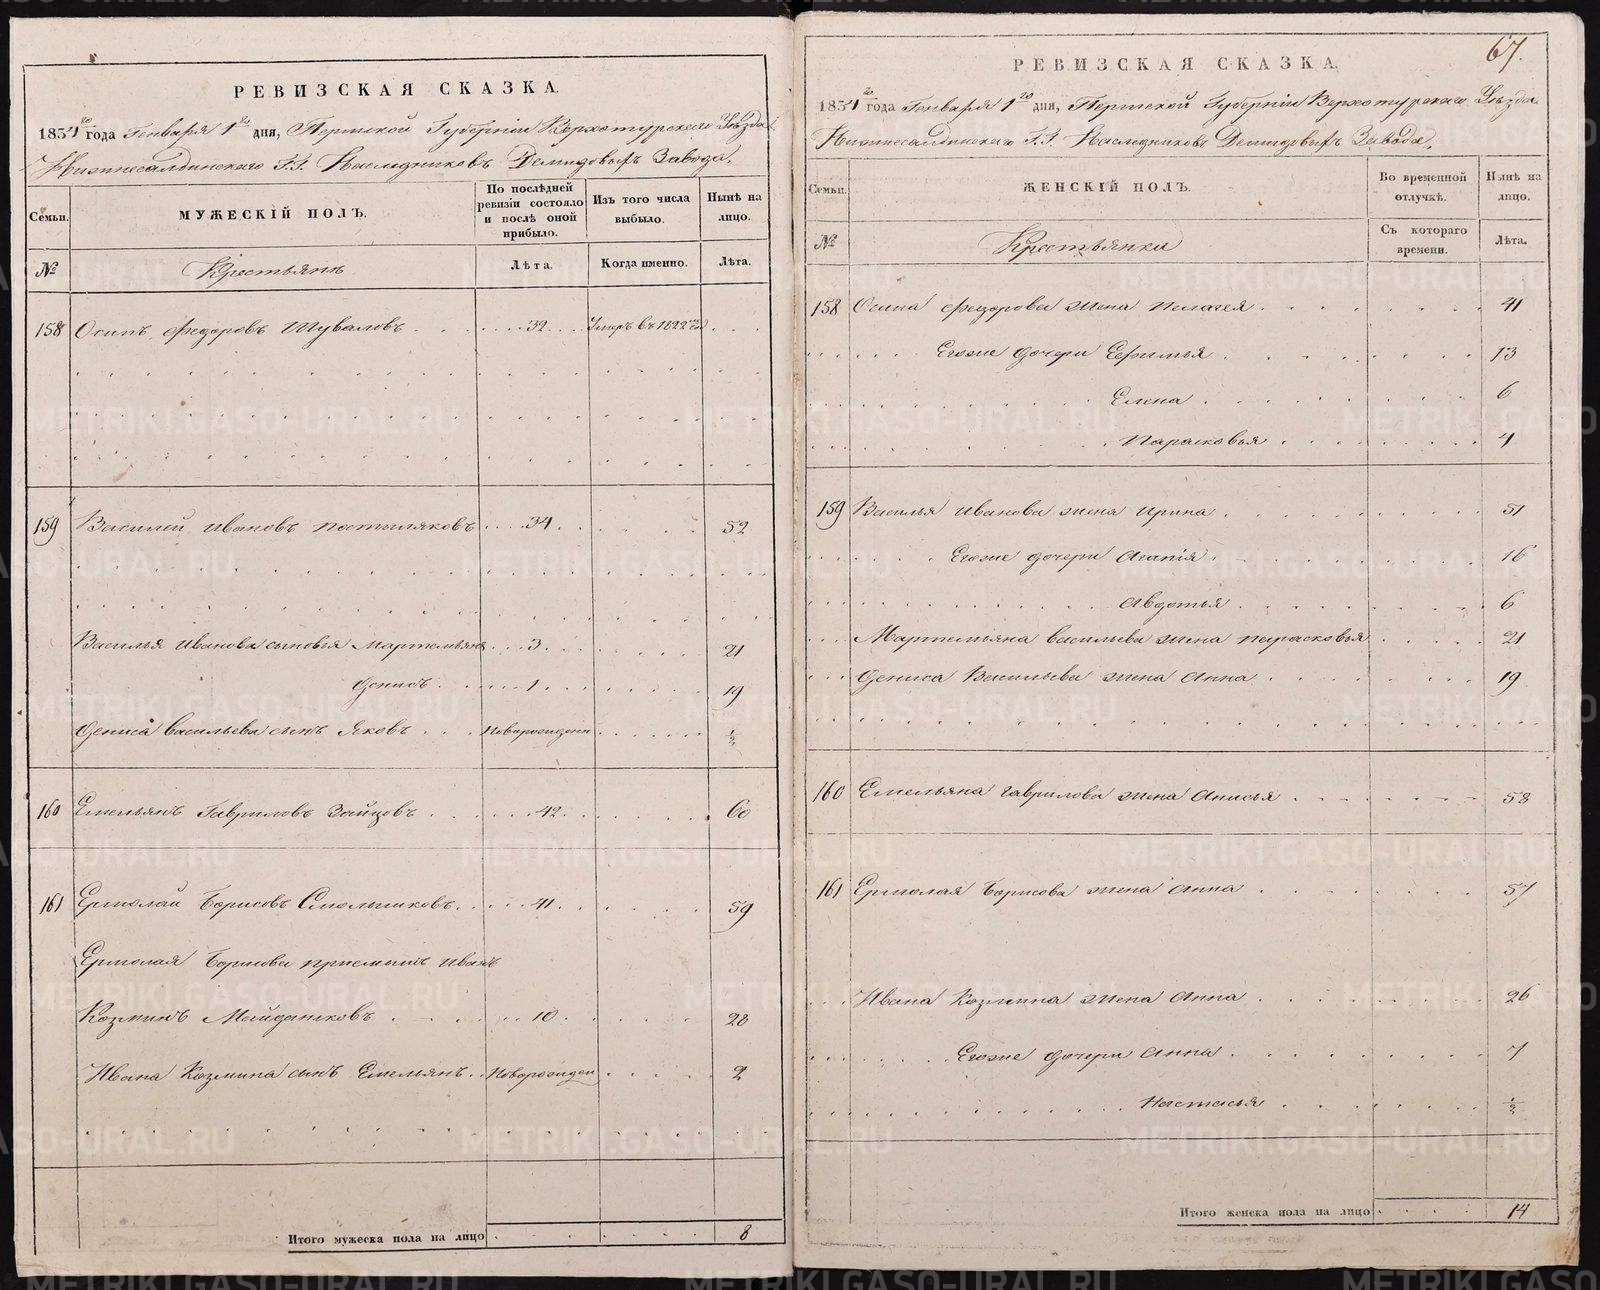 РЕВИЗСКАЯ СКАЗКА.
1834го года Генваря 1го дня, Пермской Губерніи Верхотурскаго Уѣзда
Нижнесалдинскаго Г.Г. Наслѣдниковъ Демидовыхъ Завода,
Семьи.
МУЖЕСКІЙ ПОЛЪ.
По послѣдней ревизіи состояло и послѣ оной прибыло.
Изъ того числа выбыло.
Нынѣ на лицо.
№
Крестьянъ
Лѣта.
Когда именно.
Лѣта.
158 Осипъ Федоровъ Шуваловъ 32 Умеръ въ 1822
159 Василей Ивановъ Постыляковъ 34 52
Василья Иванова сыновья Мартемьянъ 3 21
Денисъ 1 19
Дениса Васильева сынъ Яковъ Новорожденъ ½
160 Емельянъ Гавриловъ Зайцовъ 42 60
161 Ермолай Борисовъ Смольниковъ 41 59
Ермолая Борисова приемышъ Иванъ
Козминъ Майданковъ 10 28
Ивана Козмина сынъ Емельянъ Новорожден 2
Итого мужеска пола на лицо 8
67.
РЕВИЗСКАЯ СКАЗКА.
1834го года Генваря 1го дня, Пермской Губерніи Верхотурскаго Уѣзда
Нижнесалдинскаго Г.Г. Наслѣдниковъ Демидовыхъ Завода,
Семьи.
ЖЕНСКІЙ ПОЛЪ.
Во временной отлучкѣ.
Нынѣ на лицо.
№
Крестьянки
Съ котораго времени.
Лѣта.
158 Осипа Федорова жена Пелагея 41
Егоже дочери Ефимья 13
Елена 6
Парасковья 4
159 Василья Иванова жена Ирина 51
Егоже дочери Агапія 16
Авдотья 6
Мартемьяна Васильева жена Парасковья 21
Дениса Васильева жена Анна 19
160 Емельяна Гаврилова жена Анисья 58
161 Ермолая Борисова жена Анна 57
Ивана Козмина жена Анна 26
Егоже дочери Анна 7
Настасья ½
Итого женска пола на лицо 14
METRIKI.GASO-URAL.RU